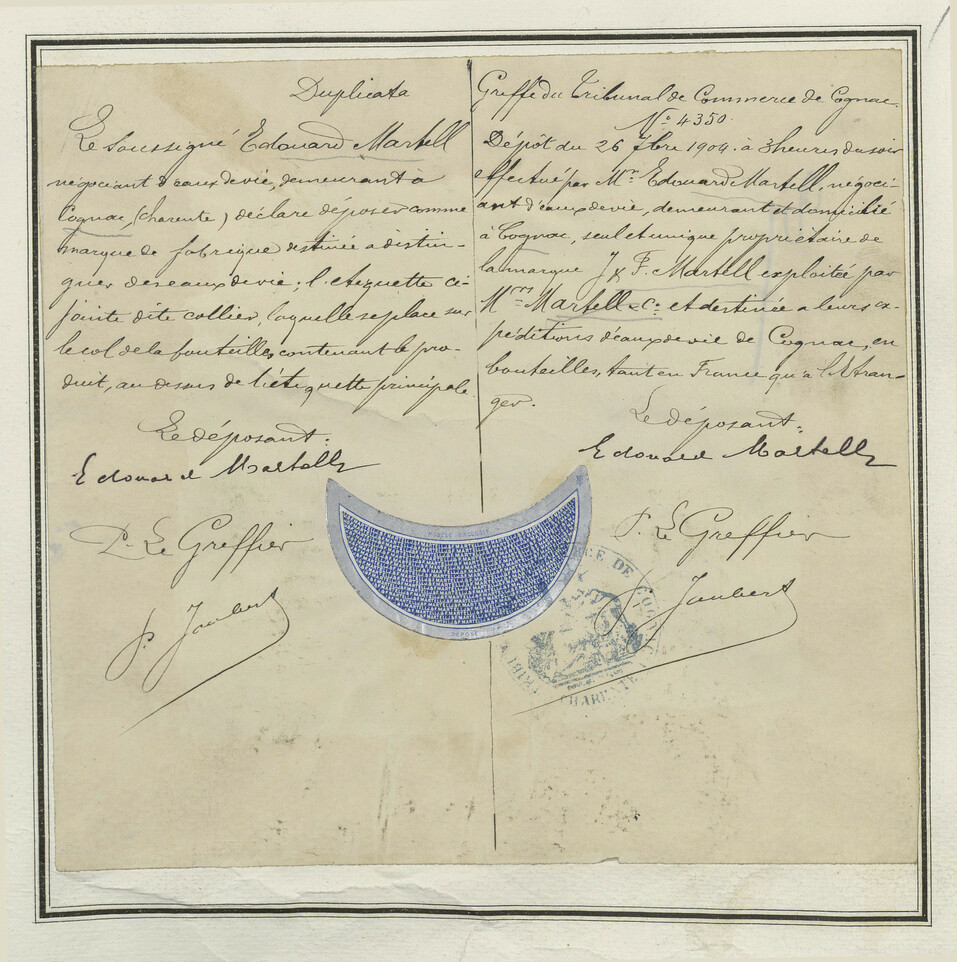 Duplicata
Le soussigné Edouard Martell
négociant d'eaux de vie, demeurant à
Cognac, (Charente) déclare déposer comme
marque de fabrique destinée a distin-
guer des eaux de vie; l'etiquette ci-
jointe dite collier, laquelle se place sur
le col de la bouteille, contenant le pro-
duit, au dessus de l'étiquette principale.
Le déposant:
Edouard Martell
P. Le Greffier
P. Joubert
Greffe du Tribunal de Commerce de Cognac.
No 4350.
Dépôt du 26 7bre 1904 à 3 heures du soir
effectué par Mr. Edouard Martell, négoci-
ant d'eaux de vie, demeurant et domicilié
à Cognac, seul et unique propriétaire de
la marque J & F. Martell exploitée par
Mrs Martell & Co. et destinée a leurs ex-
péditions d'eaux de vie de Cognac, en
bouteilles, tant en France qu'a l'Etran-
ger.
Le déposant:
Edouard Martell
P. Le Greffier
Joubert
MODÈLE EXCLUSIF
DÉPOSÉ
CE DE COG
TRIBU
CHARENTE